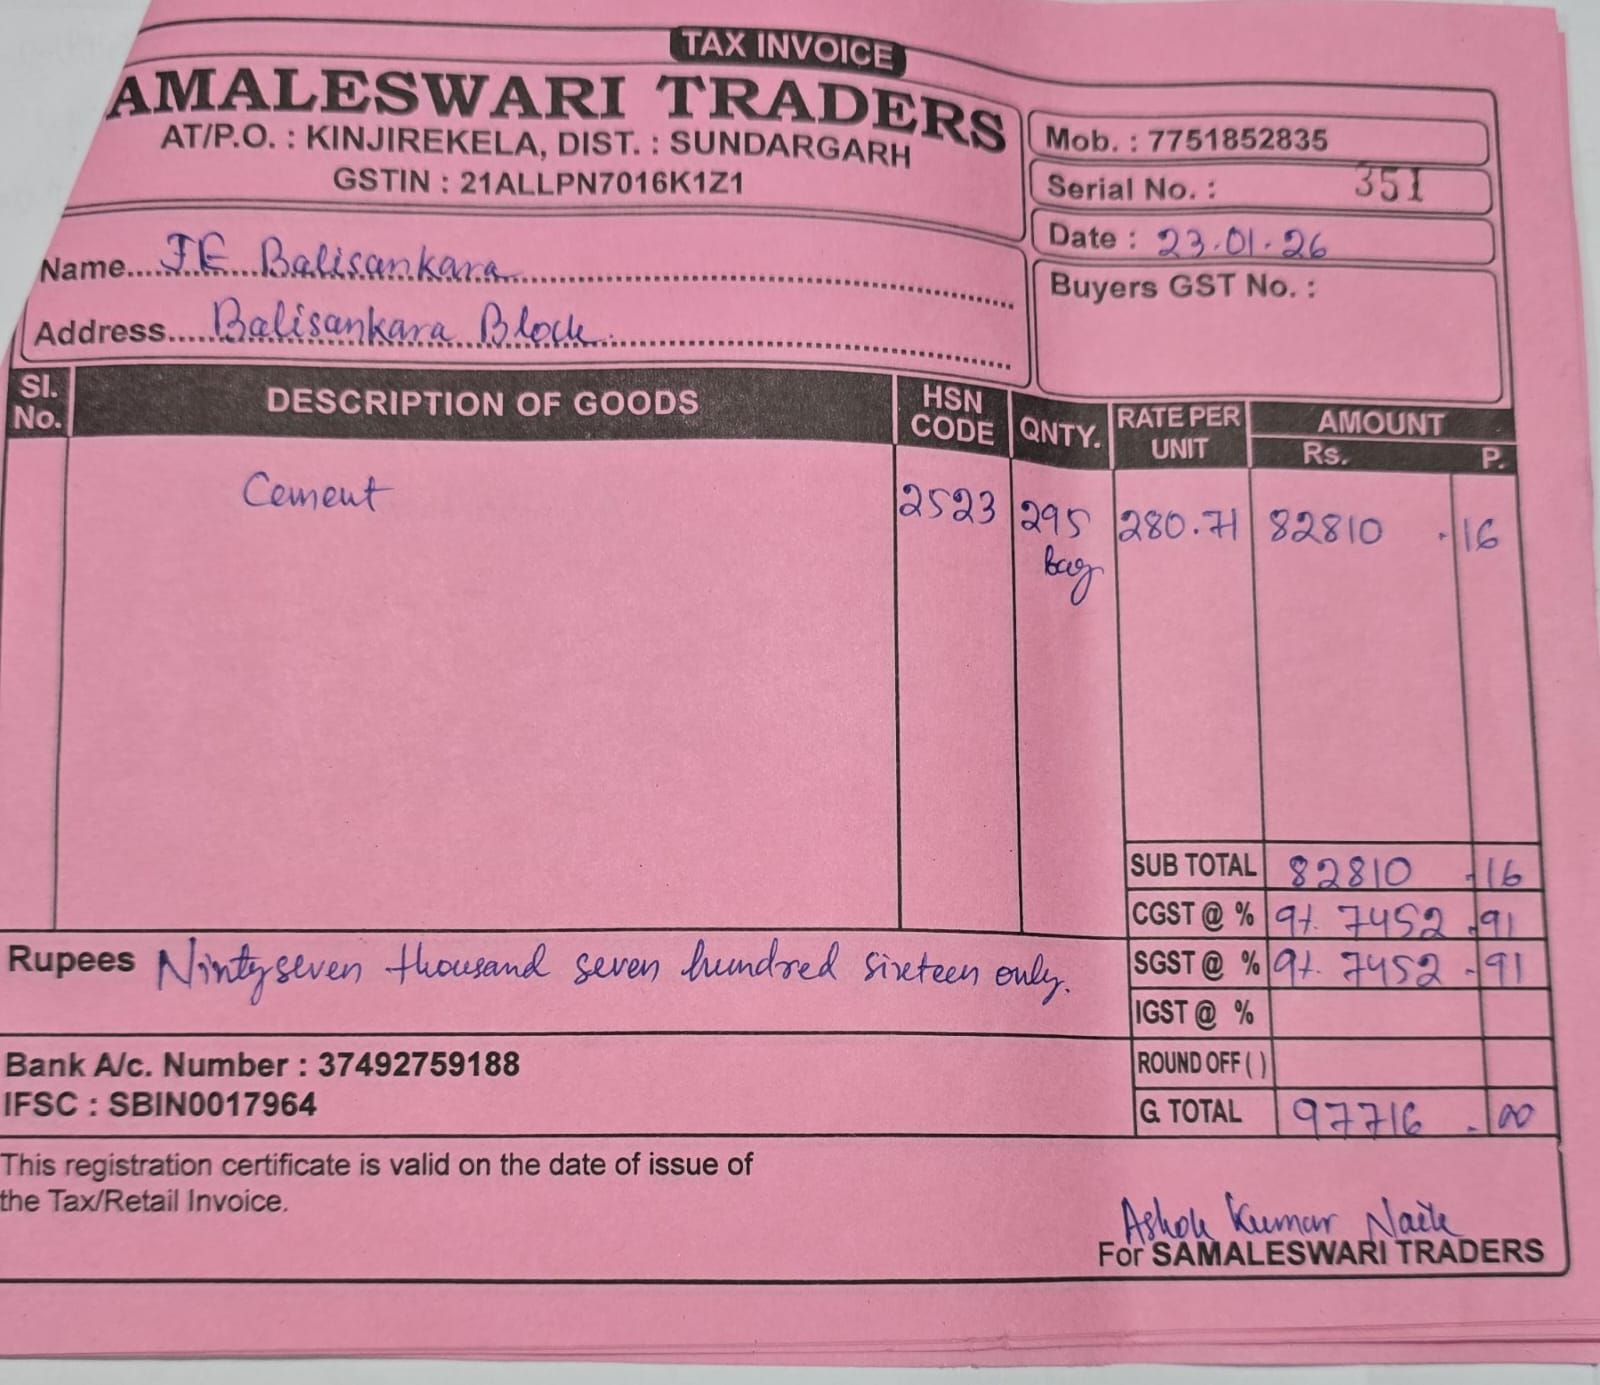 TAX INVOICE
AMALESWARI TRADERS
AT/P.O. : KINJIREKELA, DIST. : SUNDARGARH
GSTIN : 21ALLPN7016K1Z1
Mob. : 7751852835
Serial No. : 351
Date : 23.01.26
Buyers GST No. :
Name.....JE Balisankara
Address.....Balisankara Block
Sl. No. DESCRIPTION OF GOODS HSN CODE QNTY. RATE PER UNIT AMOUNT Rs. P.
Cement 2523 295 bag 280.71 82810 .16
SUB TOTAL 82810 .16
CGST @ % 9%. 7452 .91
SGST @ % 9%. 7452 .91
IGST @ %
ROUND OFF ( )
G. TOTAL 97716 .00
Rupees Nintyseven thousand seven hundred sixteen only.
Bank A/c. Number : 37492759188
IFSC : SBIN0017964
This registration certificate is valid on the date of issue of
the Tax/Retail Invoice.
Ashok Kumar Naik
For SAMALESWARI TRADERS